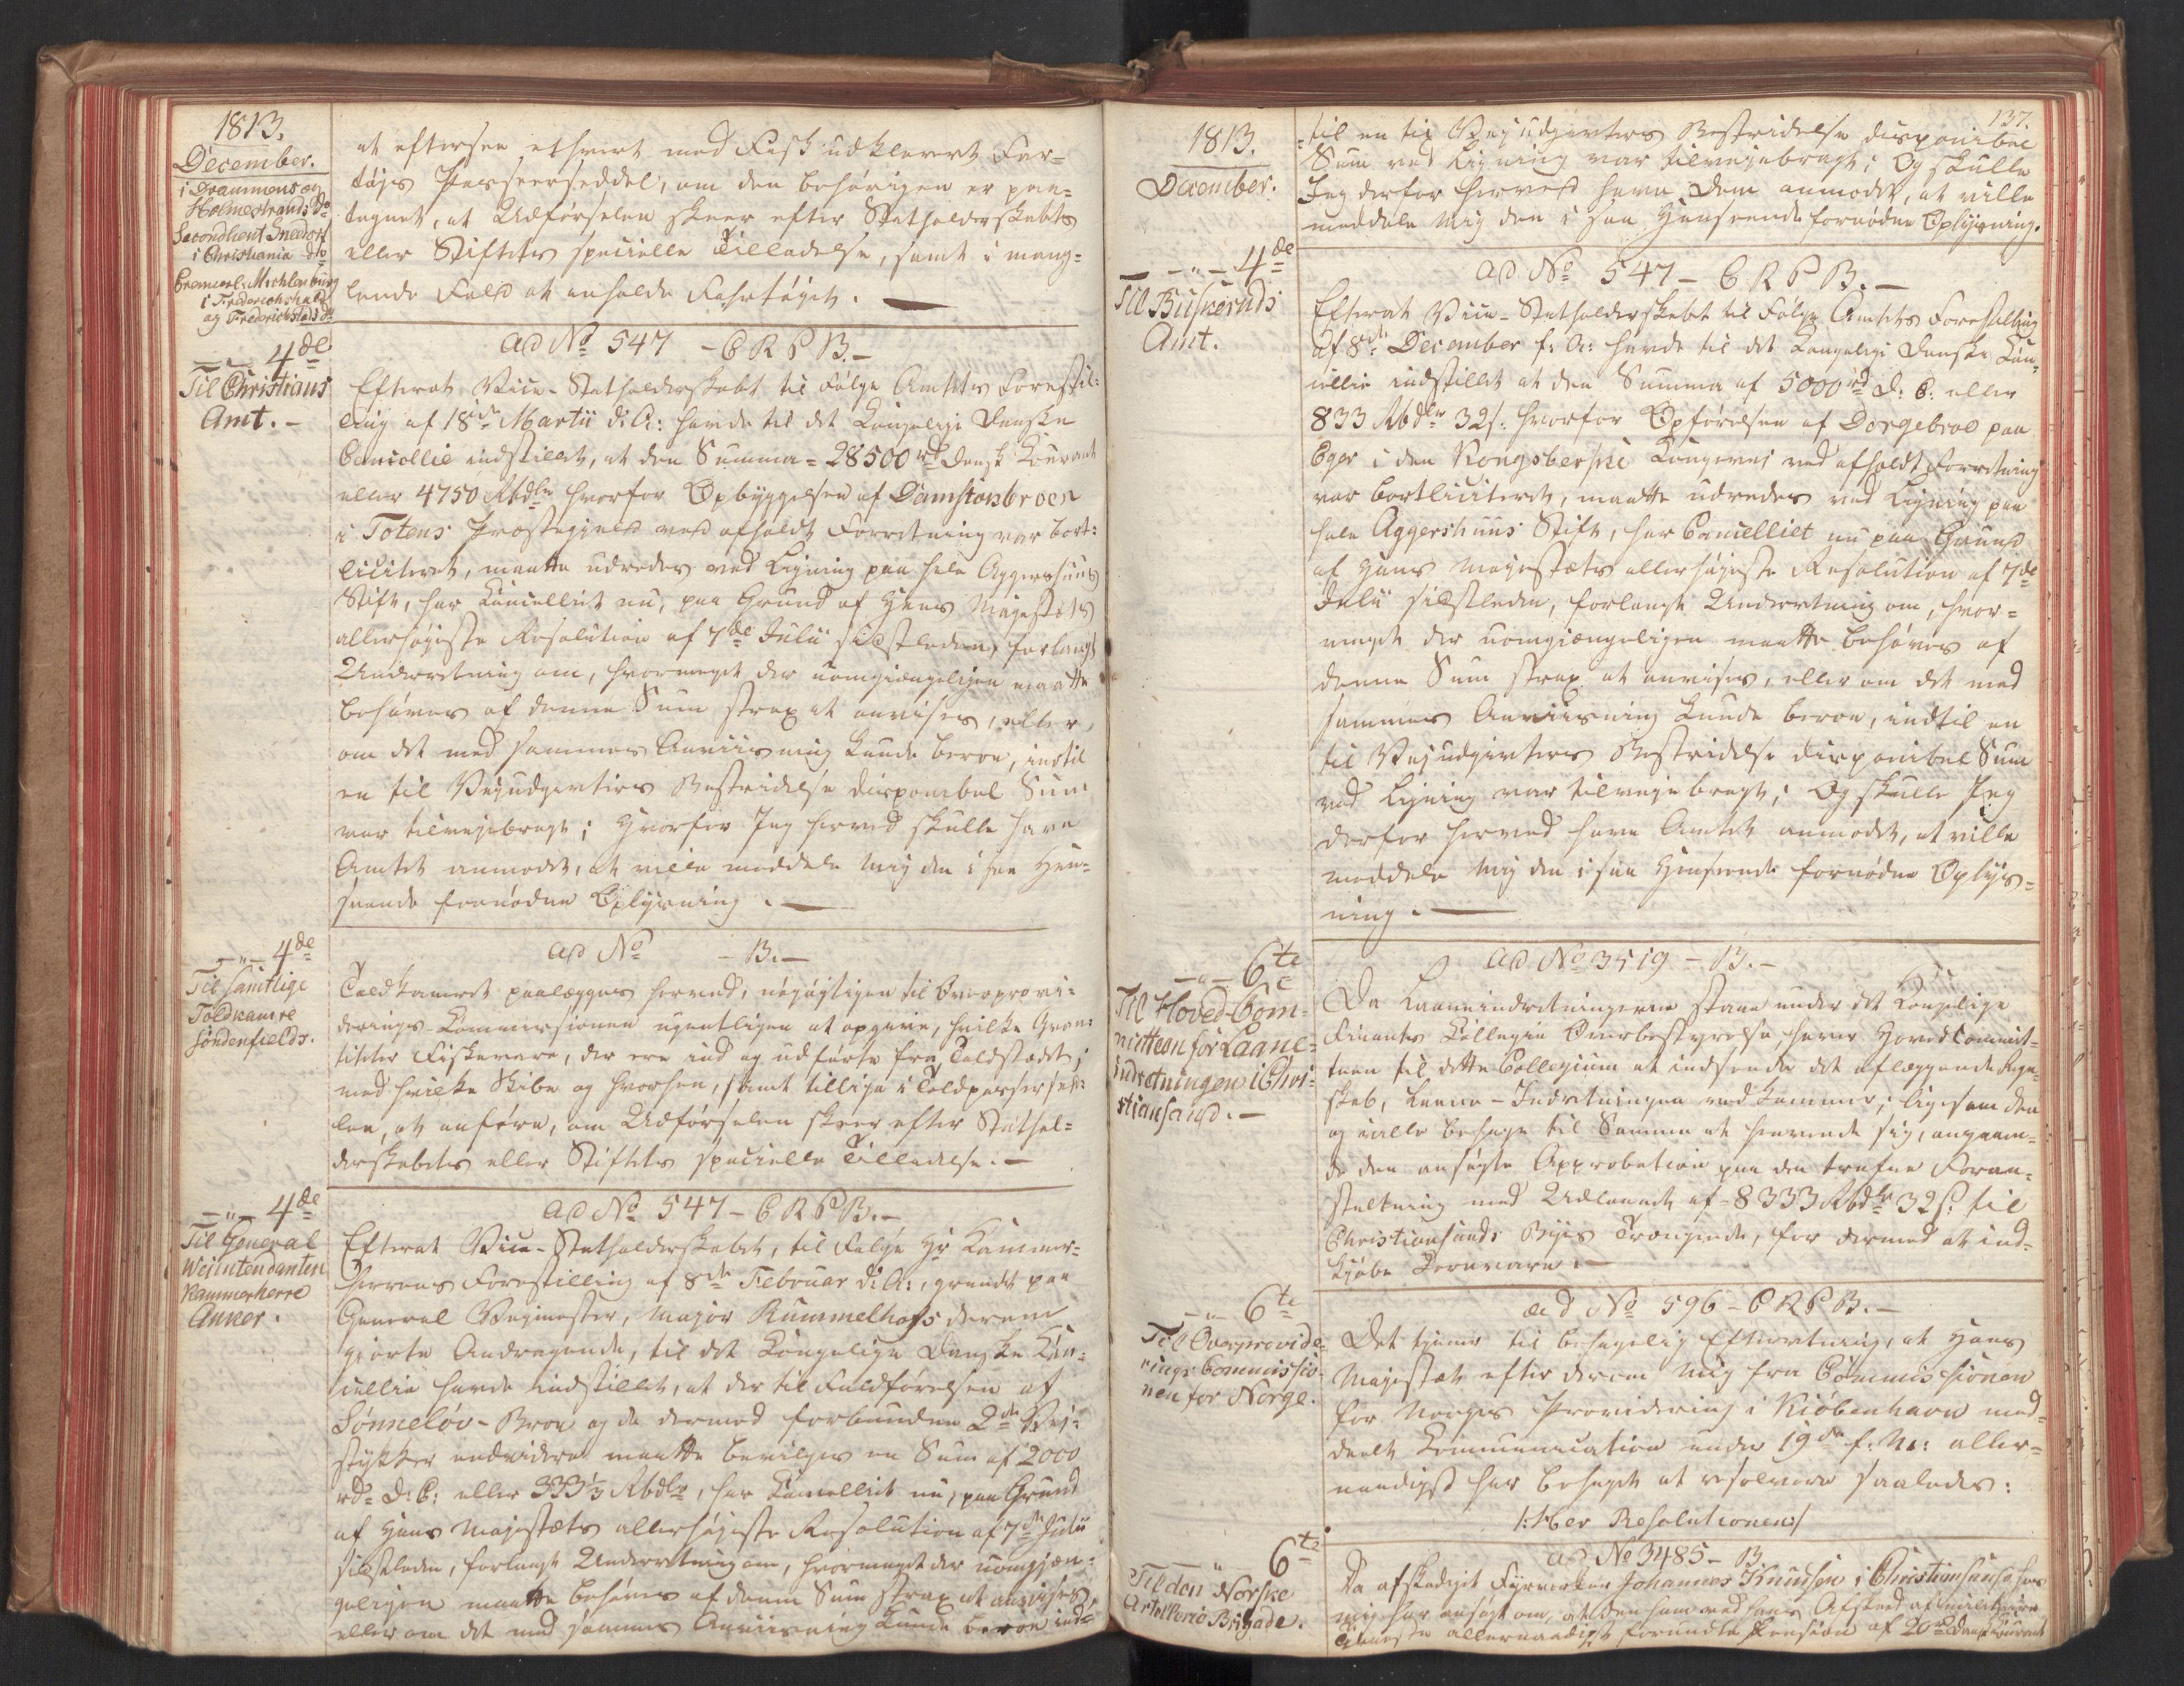 1813.
December.
i Drammens og
Holmestrands Do
Secondlieut Sneedorf
i Christiania do
Premierl. Mechlenburg
i Friderichshald
og Friderichstads do
at eftersee ethvert med Fisk udklarert Far=
tøjs Passeerseddel, om den behørigen er paa=
tegnet, at Udførselen skeer efter Statholderskabets
eller Stiftets specielle Tilladelse, samt i mang=
lende Fald at anholde Fahrtøjet.
— " — 4de
Til Christians
Amt. —
ad No 547 - C R P B. —
Efterat Vice-Statholderskabet til Følge Amtets Forestil=
ling af 18de Martii d: A: havde til det Kongelige Danske
Cancellie indstillet, at den Summa = 28500 rd Dansk Courant
eller 4750 Rbdlr hvorfor Opbyggelsen af Damstøsbroen
i Totens Præstegjeld ved afholdt Forretning var bort=
liciteret, maatte udredes ved Ligning paa hele Aggershuus
Stift, har Cancelliet nu, paa Grund af Hans Majestæts
allerhøjeste Resolution af 7de Julii sidstleden, forlangt
Underretning om, hvormeget der uomgiængeligen maatte
behøves af denne Sum strax at anvises, eller,
om det med sammes Anviisning kunde beroe, indtil
en til Vejudgivters Bestridelse disponibel Sum
var tilvejebragt; Hvorfor Jeg herved skulle have
Amtet anmodet, at ville meddele Mig den i saa Hen=
seende fornødne Oplysning. —
— " — 4de
Til samtlige
Toldkamre
Søndenfields.
ad No - B. —
Toldkamret paalægges herved, nøjagtigen til Overprovi=
derings-Commissionen ugentligen at opgive, hvilke Qvan=
titeter Fiskevare, der ere ind og udførte fra Toldstædet,
med hvilke Skibe og hvorhen, samt tillige i Toldpasseersed=
len, at anføre, om Udførselen skeer efter Stathol=
derskabets eller Stiftets specielle Tilladelse. —
— " — 4de
Til General
Vejintendanten
Kammerherre
Anker.
ad No 547 - C R P B. —
Efterat Vice-Statholderskabet, til Følge Hr Kammer=
herrens Forestilling af 8de Februar d: A:, grundet paa
General Vejmester, Major Rummelhofs derom
gjorte Andragende, til det Kongelige Danske Can=
cellie havde indstillet, at der til Fuldførelsen af
Sønneløv-Broe og de dermed forbundne 2de Vei=
stykker endvidere maatte bevilges en Sum af 2000
rd. D: C: eller 333 1/3 Rbdlr, har Cancelliet nu, paa Grund
af Hans Majestæts allerhøjeste Resolution af 7de Julii
sidstleden, forlangt Underretning om, hvormeget der uomgiæn=
geligen maatte behøves af denne Sum strax at anvises,
eller om det med sammes Anviisning kunde beroe ind=
137.
1813.
December.
=til en til Vejudgivters Bestridelse disponibel
Sum ved Ligning var tilvejebragt; Og skulle
Jeg derfor herved have Dem anmodet, at ville
meddele Mig den i saa Henseende fornødne Oplysning.
— " — 4de
Til Buskeruds
Amt.
ad No 547 - C R P B. —
Efterat Vice-Statholderskabet til Følge Amtets Forestilling
af 8de December f: A: havde til det Kongelige Danske Can=
cellie indstillet at den Summa af 5000 rd D: C: eller
833 Rbdlr 32 s. hvorfor Opførelsen af Dorgebroe paa
Eger i den Kongsbergske Kongevej ved afholdt Forretning
var bortliciteret, maatte udredes ved Ligning paa
hele Aggershuus Stift, har Cancelliet nu paa Grund
af Hans Majestæts allerhøjeste Resolution af 7de
Julii sidstleden, forlangt Underretning om, hvor=
meget der uomgiængeligen maatte behøves af
denne Sum strax at anvises, eller om det med
sammes Anviisning kunde beroe, indtil en
til Vejudgivters Bestridelse disponibel Sum
ved Ligning var tilvejebragt; Og skulle Jeg
derfor herved have Amtet anmodet, at ville
meddele Mig den i saa Henseende fornødne Oplys=
ning. —
— " — 6te
Til Hoved-Com=
mitteen for Laane=
indretningen i Chri=
stiansand. —
ad No 3519 - B. —
Da Laaneindretningerne staae under det Kongelige
Finants Collegii Overbestyrelse, haver Hoved Commit=
teen til dette Collegium at indsende det aflæggende Regn=
skab, Laane-Indretningen vedkommer, ligesom den
og ville behage til Samme at henvende sig, angaaen=
de den ansøgte Approbation paa den trufne Foran=
staltning med Udlaanet af 8333 Rbdlr 32 s. til
Christiansands Byes Trængende, for dermed at ind=
kjøbe Kornvare. —
— " — 6te
Til Overprovide=
rings Commissio=
nen for Norge.
ad No 596 - C R P B. —
Det tjener til behagelig Efterretning, at Hans
Majestæt efter derom Mig fra Commissionen
for Norges Providering i Kiøbenhavn med=
deelt Communication under 19de f: M: aller=
naadigst har behaget at resolvere saaledes:
/: Her Resolutionen :/
— " — 6te
Til den Norske
Artellerie Brigade.
ad No 3485 - B
Da afskediget Fyrverker Johannes Knudsen i Christiansand hos
mig har ansøgt om, at den ham ved hans Afsked af militaire
Tieneste allernaadigst forundte Pension af 20 rd Dansk Courant